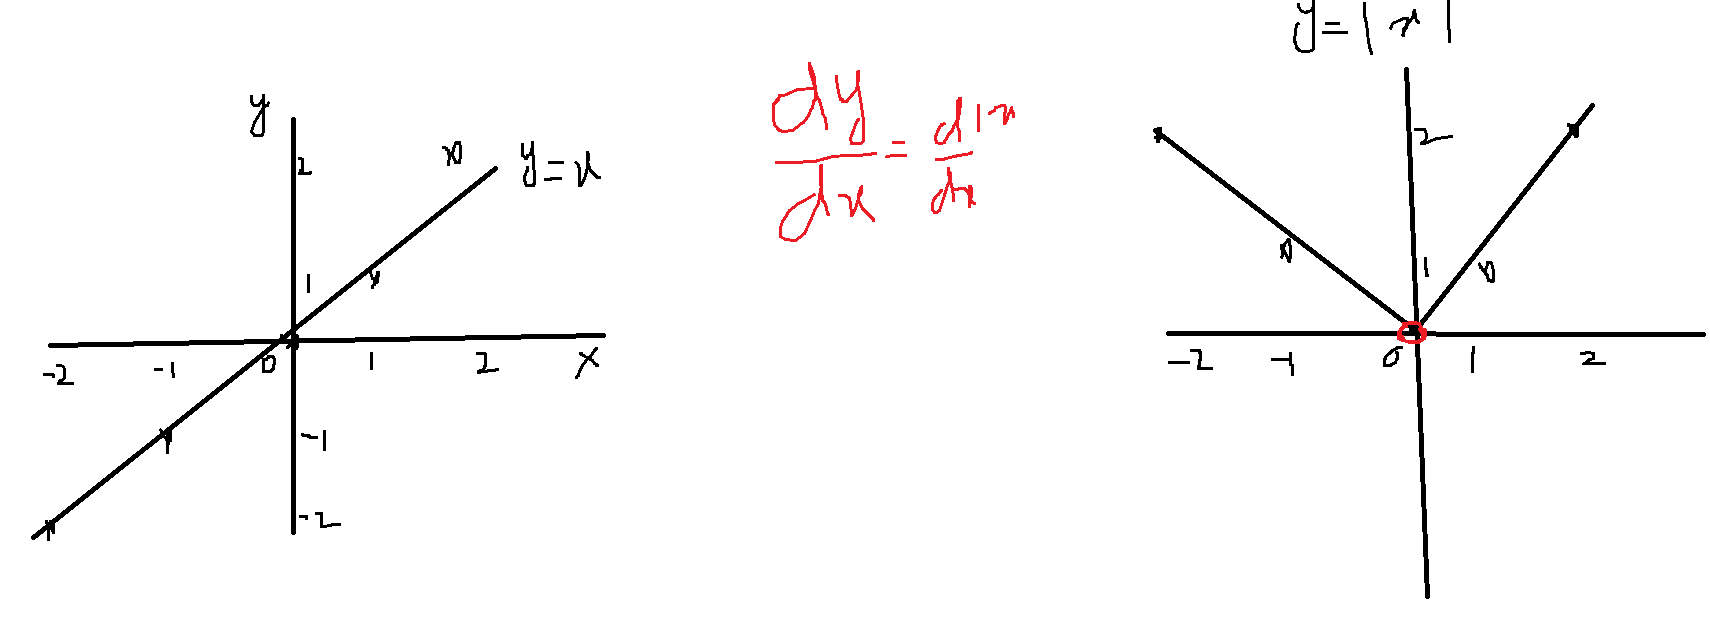 y
2
y=x
1
-2 -1 0 1 2 X
-1
-2
dy/dx = d|x/dx
y=|x|
2
1
-2 -1 0 1 2